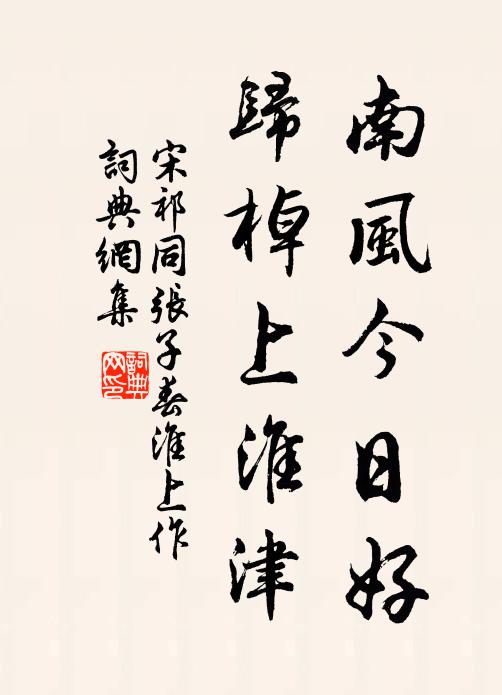 南風今日好
歸棹上淮津
宋祁同張子春淮上作
詞典網集
詞典
网印